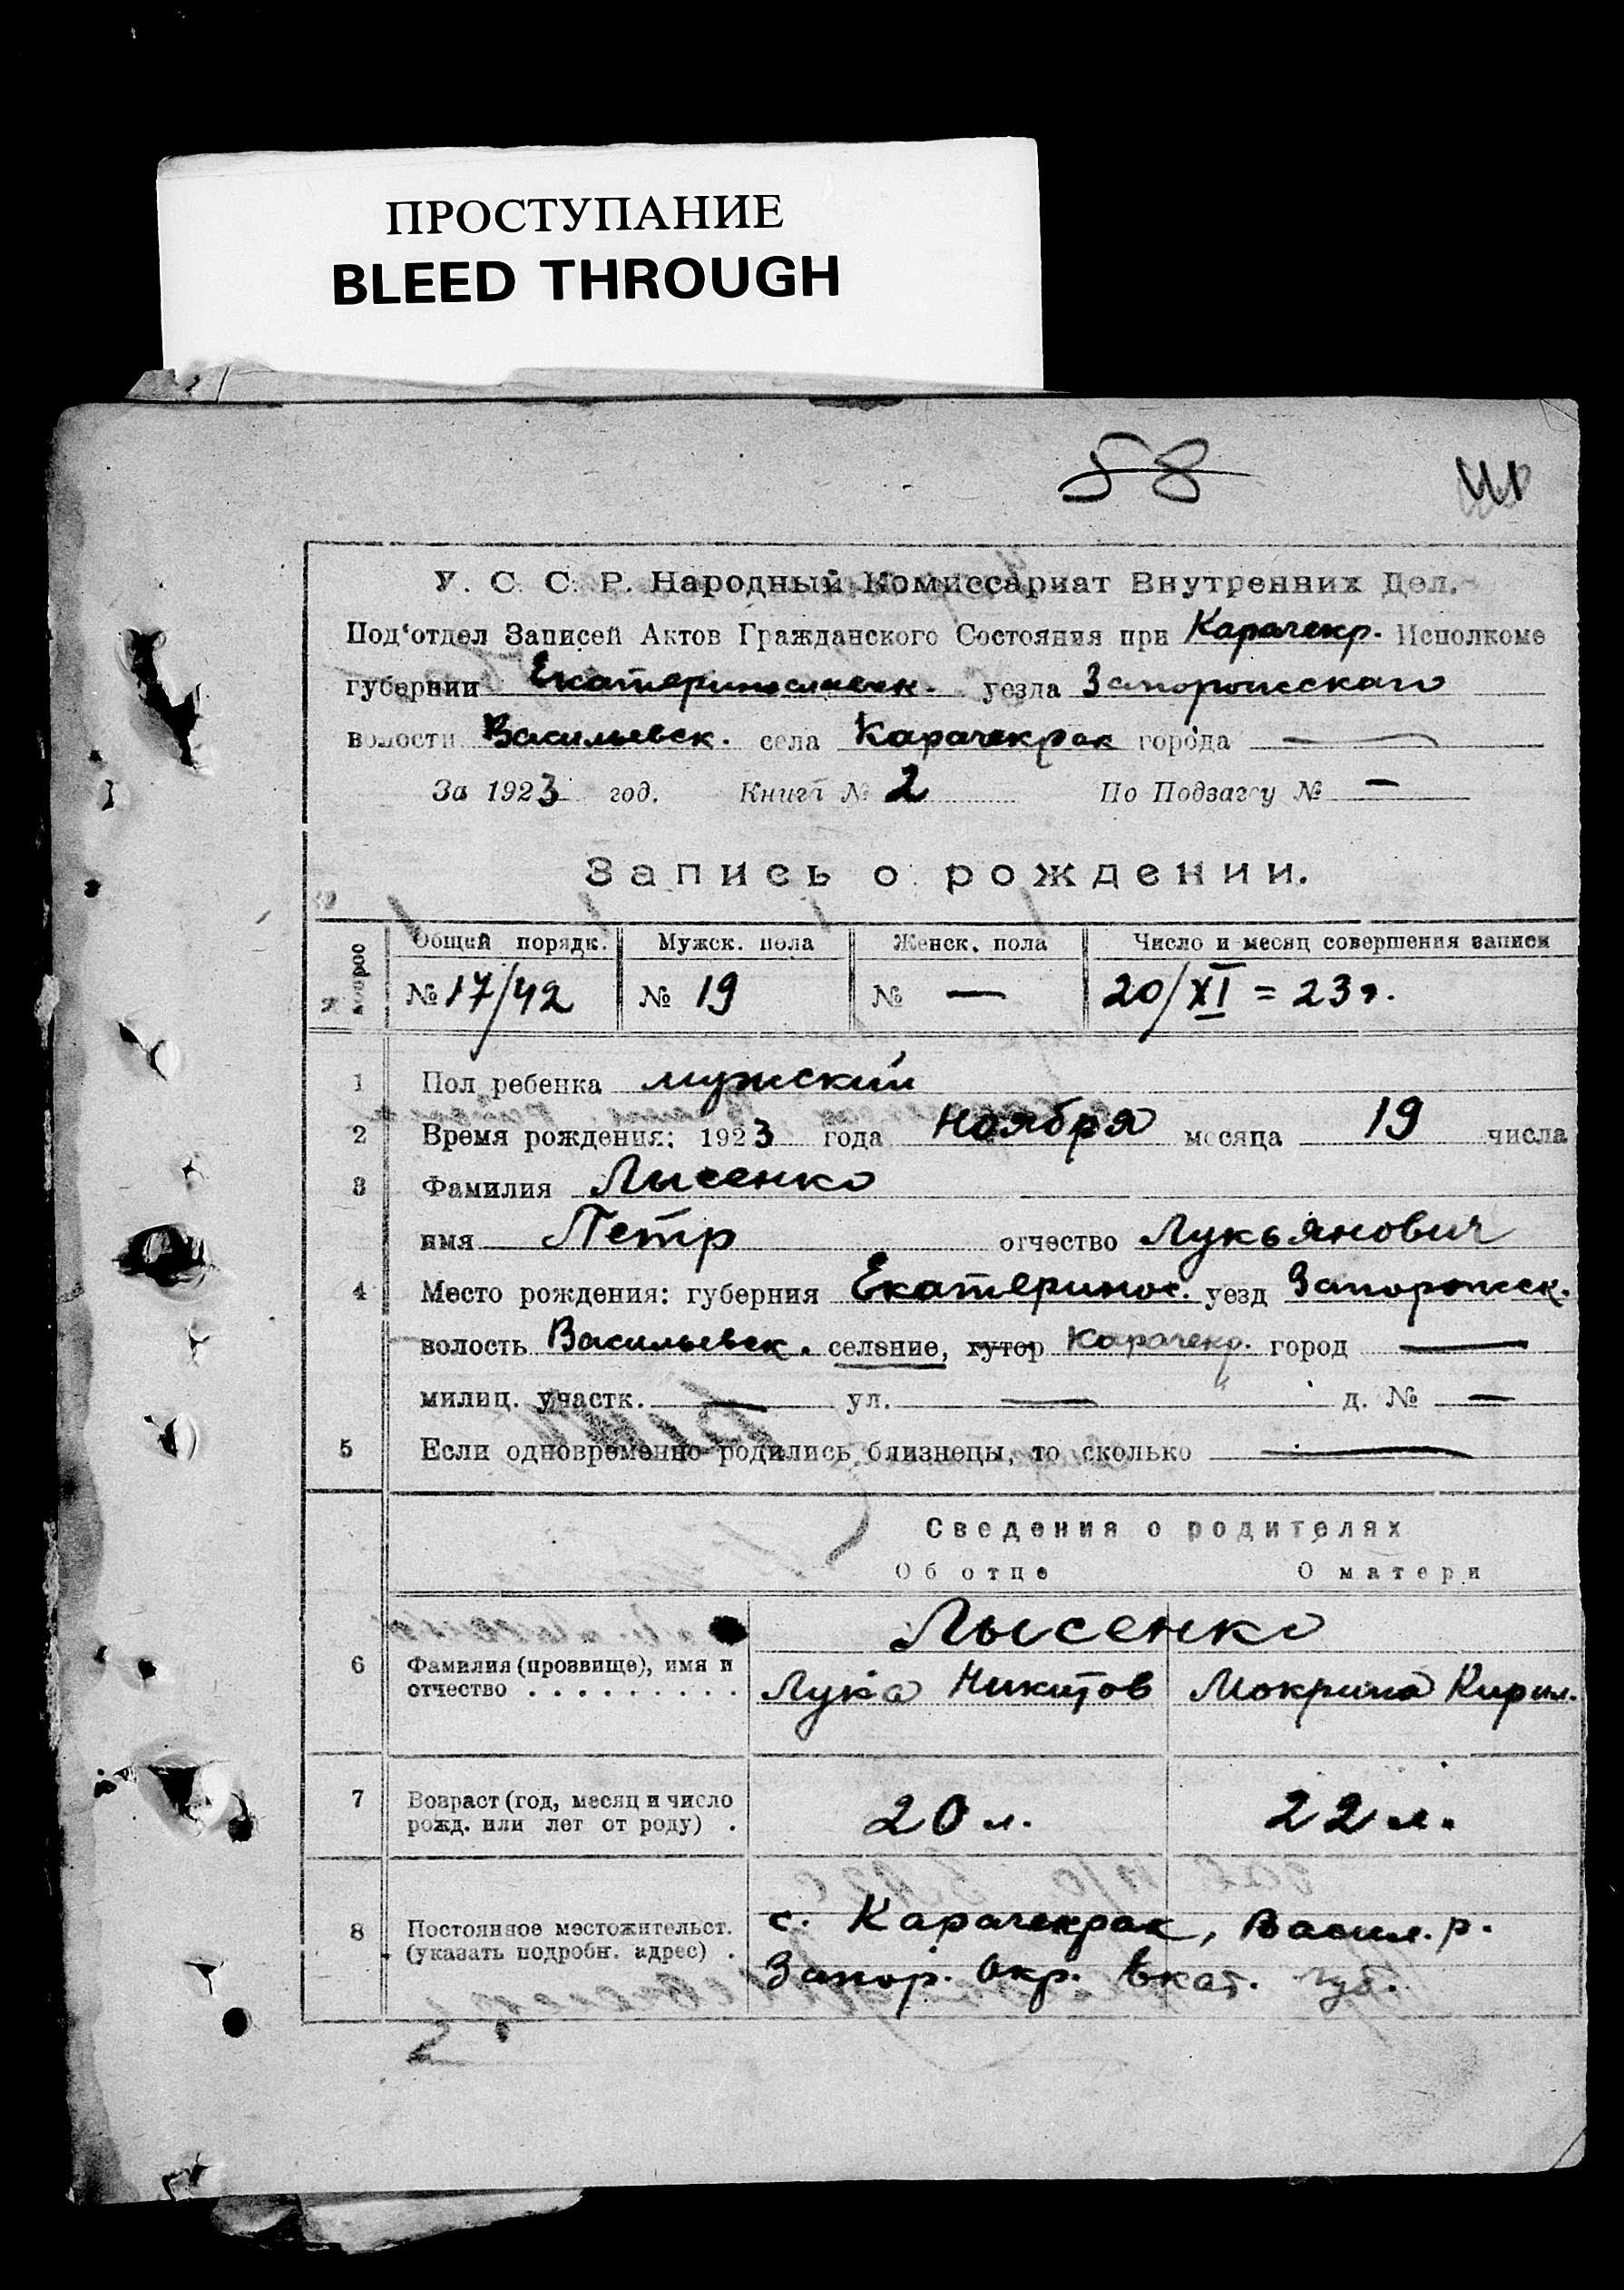 ПРОСТУПАНИЕ
BLEED THROUGH
58
У. С. С. Р. Народный Комиссариат Внутренних Дел.
Под‘отдел Записей Актов Гражданского Состояния при Карачекр. Исполкоме
губернии Екатеринославск. уезда Запорожскаго
волости Васильевск. села Карачекрак города —
За 1923 год. Книга № 2 По Подзагсу № —
Запись о рождении.
Общий порядк. Мужск. пола Женск. пола Число и месяц совершения записи
№ 17/42 № 19 № — 20/XI = 23 г.
1 Пол ребенка мужский
2 Время рождения: 1923 года Ноября месяца 19 числа
3 Фамилия Лысенко
имя Петр отчество Лукьянович
4 Место рождения: губерния Екатеринос. уезд Запорожск.
волость Васильевск. селение, хутор Карачекр. город —
милиц. участк. — ул. — д. № —
5 Если одновременно родились близнецы, то сколько —
Сведения о родителях
Об отце О матери
Лысенко
6 Фамилия (прозвище), имя и
отчество . . . . . . . . . Лука Никитов Мокрина Кирил.
7 Возраст (год, месяц и число
рожд. или лет от роду) . 20 л. 22 л.
8 Постоянное местожительст.
(указать подробн. адрес) .
с. Карачекрак, Васил. р.
Запор. Окр. Екат. губ.